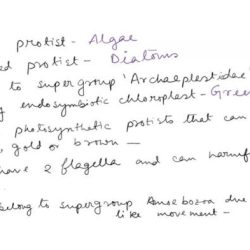 protist - Algae
ed protist - Diatoms
to supergroup 'Archaeplastidae'
endosymbiotic chloroplast - Gree
photosynthetic protists that can
, gold or brown —
have 2 flagella and can harmf
belong to supergroup Amoebozoa due
like movement -